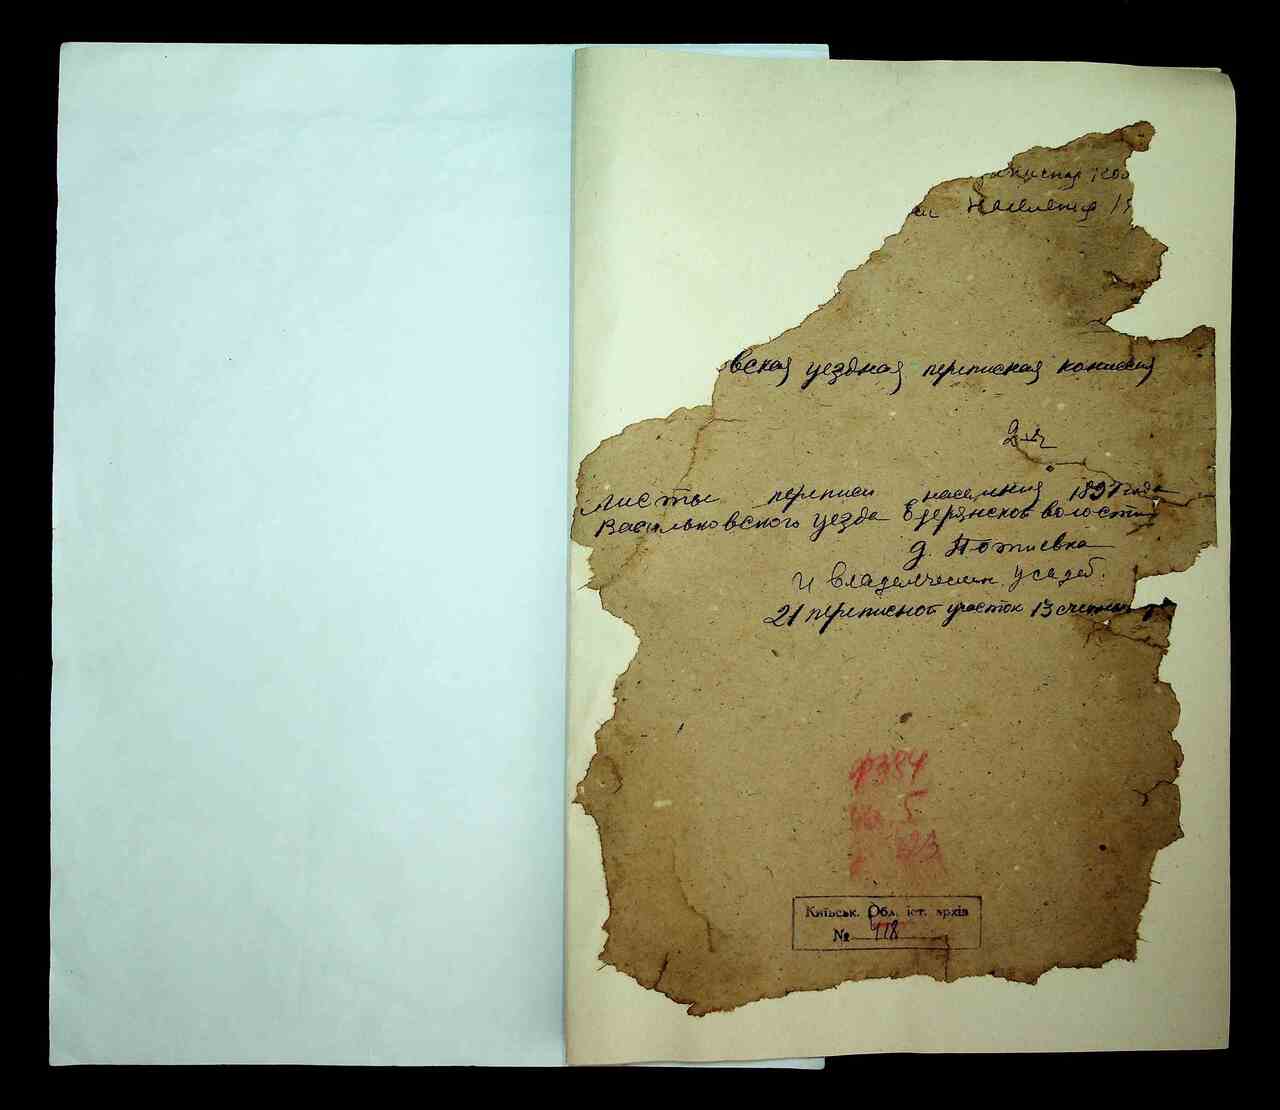 населения
вская уездная переписная комиссия
Листы переписи населения 1897 года
Васильковского уезда волости
д. Потиевка
и владельческ. усадеб.
21 переписной участок 13 счетный
ф 384
5
Київськ. Обл. іст. архів
№ 418